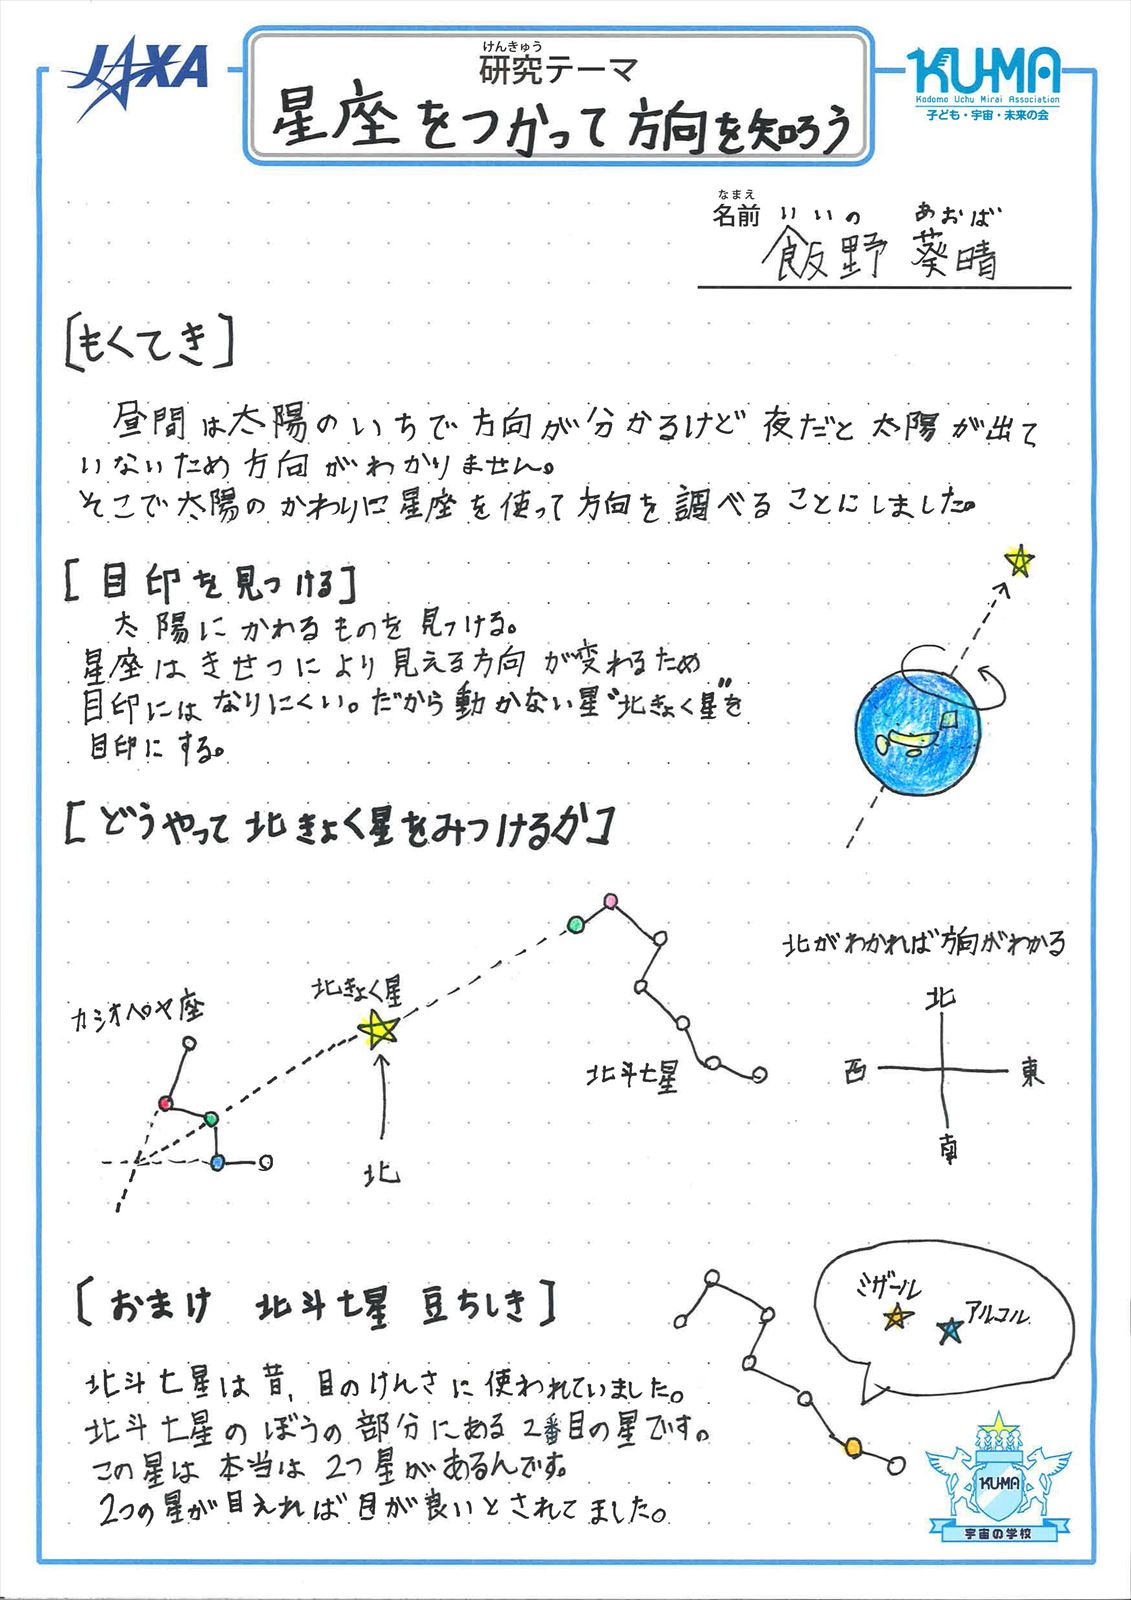 JAXA
けんきゅう
研究テーマ
星座をつかって方向を知ろう
KU-MA
Kodomo Uchu Mirai Association
子ども・宇宙・未来の会
なまえ
名前
いいの あおば
飯野 葵晴
[もくてき]
昼間は太陽のいちで方向が分かるけど夜だと太陽が出て
いないため方向がわかりません。
そこで太陽のかわりに星座を使って方向を調べることにしました。
[目印を見つける]
太陽にかわるものを見つける。
星座はきせつにより見える方向が変わるため
目印にはなりにくい。だから動かない星"北きょく星"を
目印にする。
[どうやって北きょく星をみつけるか]
北がわかれば方向がわかる
カシオペヤ座
北きょく星
北
北斗七星
北
西 東
南
[おまけ 北斗七星 豆ちしき]
ミザール
アルコル
北斗七星は昔、目のけんさに使われていました。
北斗七星のぼうの部分にある2番目の星です。
この星は本当は2つ星があるんです。
2つの星が目えれば目が良いとされてました。
KU-MA
宇宙の学校